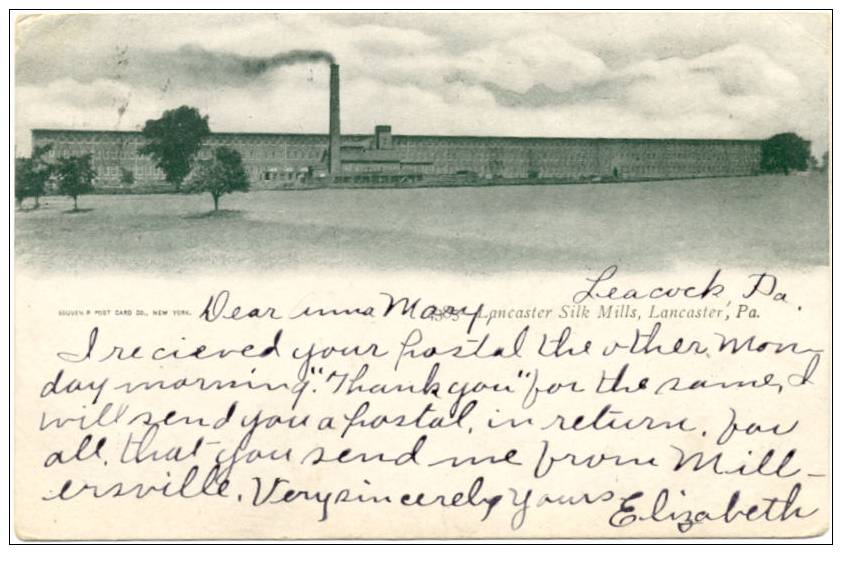 Leacock, Pa.
SOUVENIR POST CARD CO., NEW YORK.
Dear Anna Mary,
Lancaster Silk Mills, Lancaster, Pa.
I recieved your postal the other Mon-
day morning. "Thank you" for the same, I
will send you a postal, in return, for
all, that you send me from Mill-
ersville. Very sincerely Yours
Elizabeth